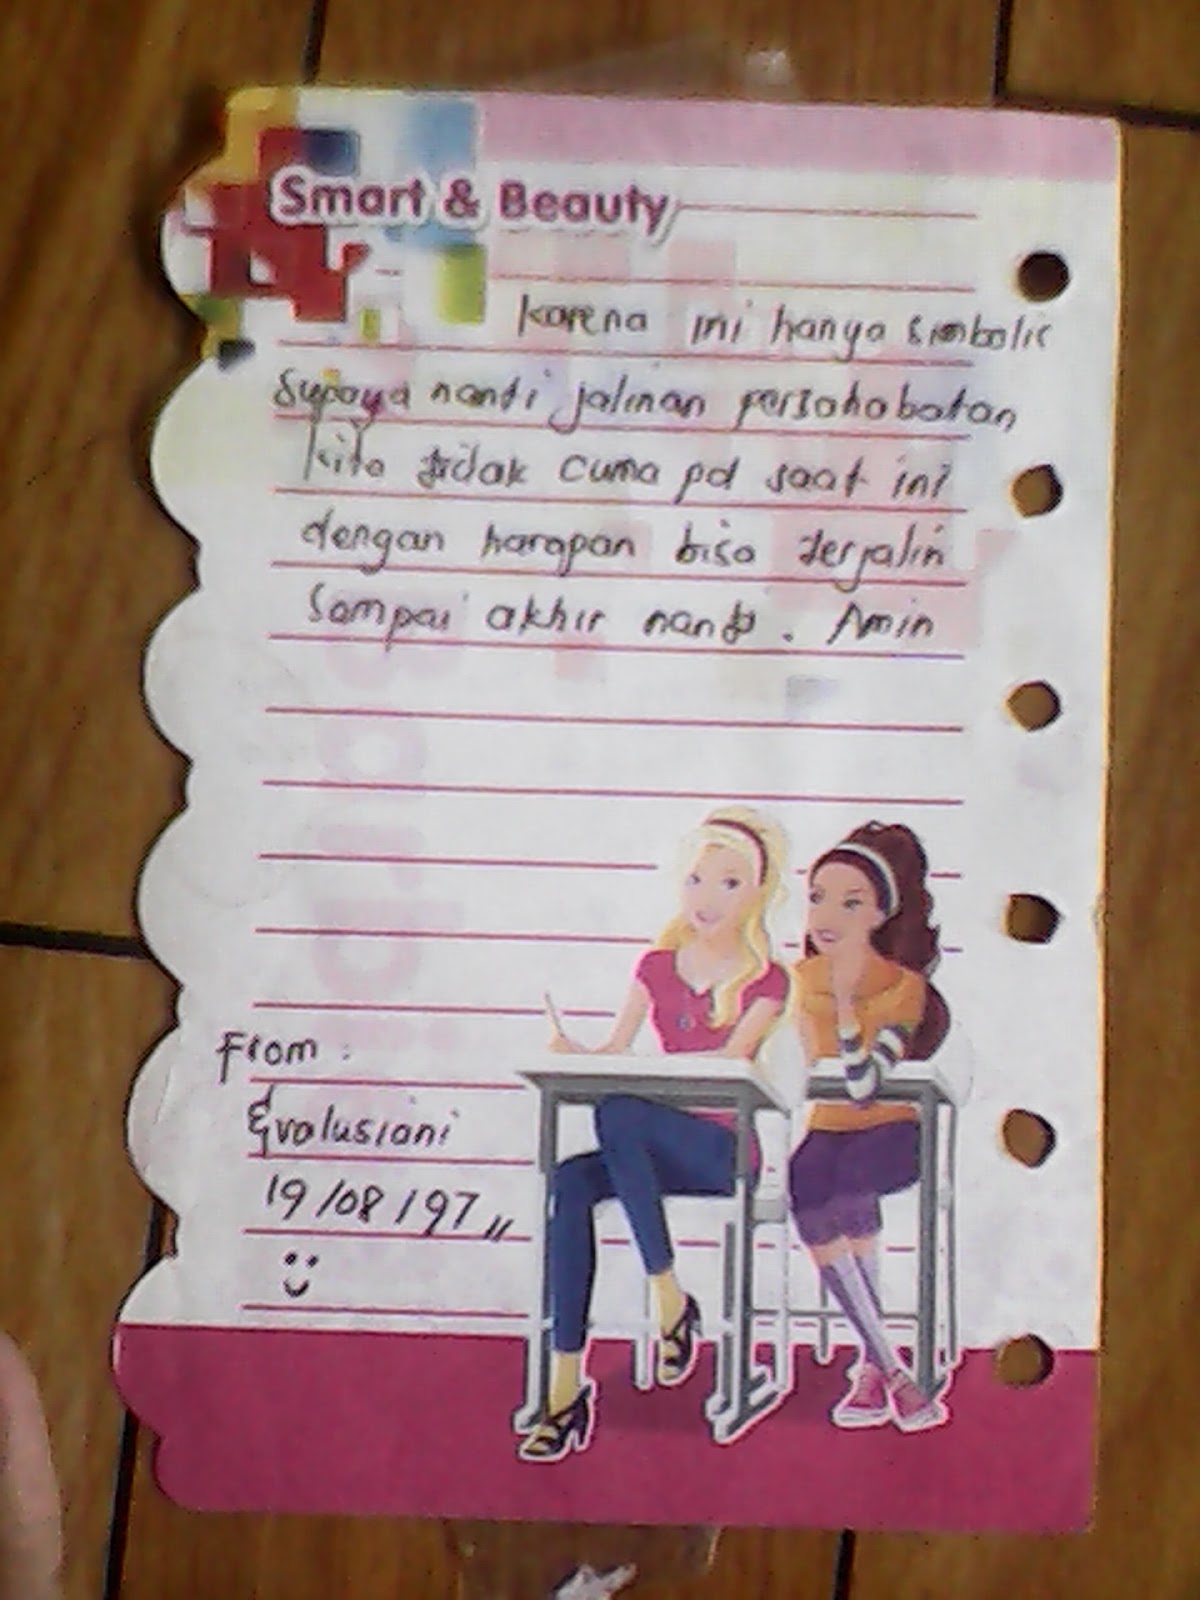 Smart & Beauty
karena ini hanya simbolic
Supaya nanti jalinan persahabatan
kita tidak cuma pd saat ini
dengan harapan bisa terjalin
Sampai akhir nanti. Amin
From :
Evalusiani
19/08/97,,